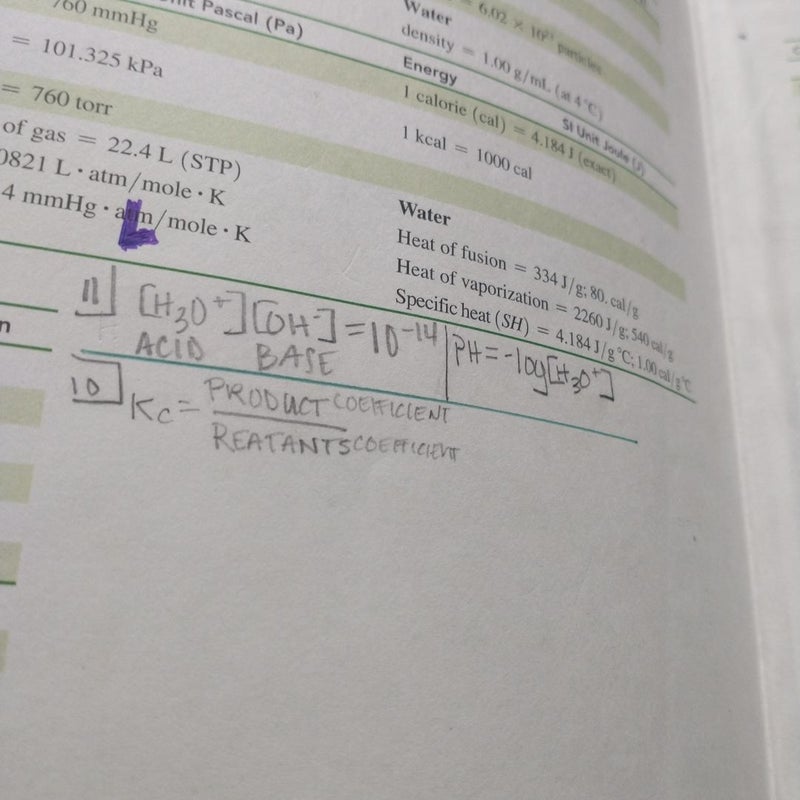 760 mmHg
Unit Pascal (Pa)
= 6.02 × 10²³ particles
= 101.325 kPa
Water
density = 1.00 g/mL (at 4 °C)
= 760 torr
Energy
SI Unit Joule (J)
of gas = 22.4 L (STP)
1 calorie (cal) = 4.184 J (exact)
0821 L · atm/mole · K
1 kcal = 1000 cal
4 mmHg · atm/mole · K
L
Water
Heat of fusion = 334 J/g; 80. cal/g
Heat of vaporization = 2260 J/g; 540 cal/g
Specific heat (SH) = 4.184 J/g °C; 1.00 cal/g °C
n
11 [H₃O⁺][OH⁻] = 10⁻¹⁴ | PH = -log[H₃O⁺]
ACID BASE
10 Kc = PRODUCT COEFFICIENT
REATANTS COEFFICIENT